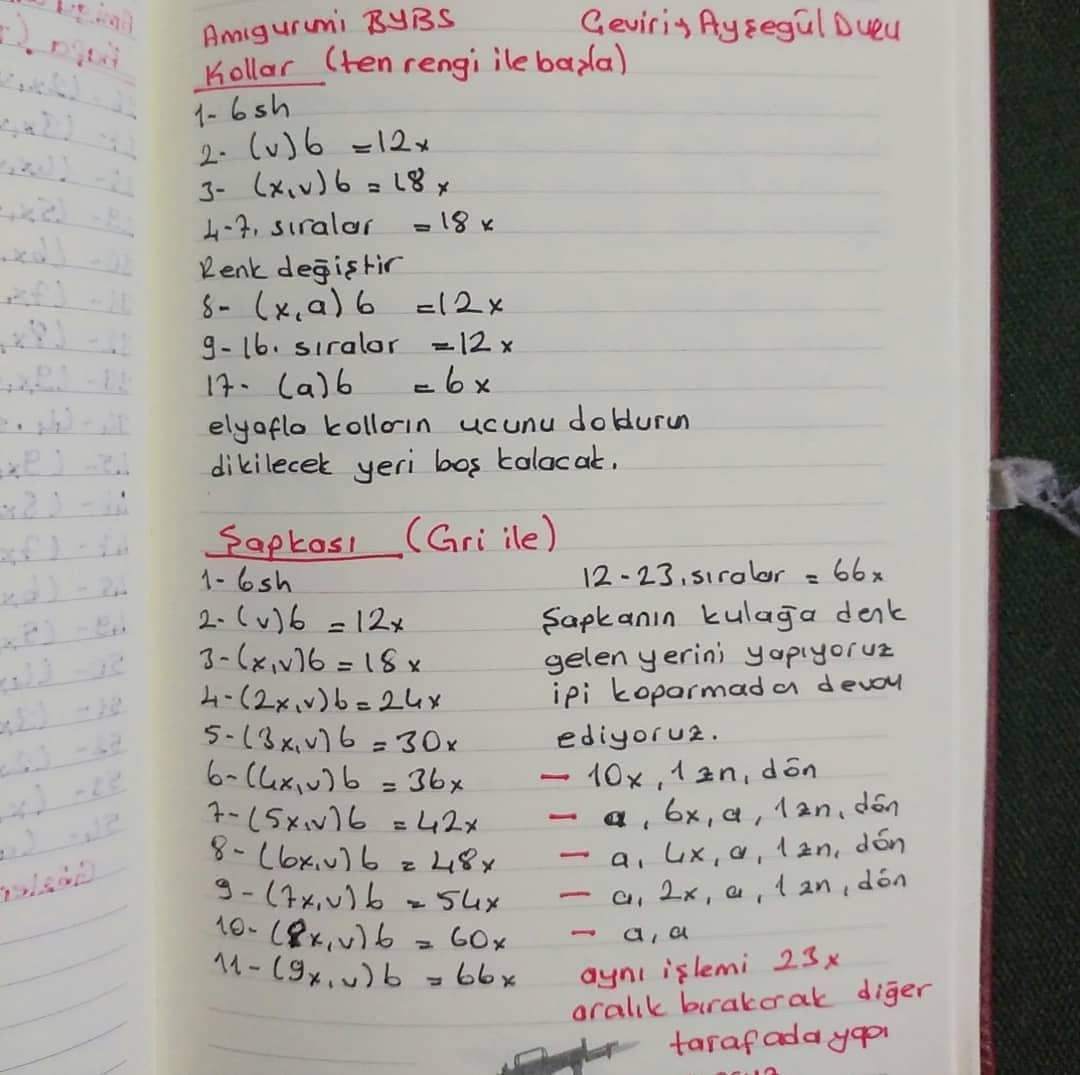 Amigurumi BYBS Çeviriş Ayşegül Duru
Kollar (ten rengi ile başla)
1- 6sh
2- (v)6 =12x
3- (x,v)6 = 18x
4-7. sıralar = 18x
Renk değiştir
8- (x,a)6 =12x
9-16. sıralar =12x
17- (a)6 = 6x
elyafla kolların ucunu doldurun
dikilecek yeri boş kalacak.
Şapkası (Gri ile)
1- 6sh
2-(v)6 =12x
3-(x,v)6 = 18x
4-(2x,v)6 = 24x
5-(3x,v)6 = 30x
6-(4x,v)6 = 36x
7-(5x,v)6 = 42x
8-(6x,v)6 = 48x
9-(7x,v)6 = 54x
10-(8x,v)6 = 60x
11-(9x,v)6 = 66x
12-23. sıralar = 66x
Şapkanın kulağa denk
gelen yerini yapıyoruz
ipi koparmadan devam
ediyoruz.
- 10x, 1zn, dön
- a, 6x, a, 1zn, dön
- a, 4x, a, 1zn, dön
- a, 2x, a, 1zn, dön
- a, a
aynı işlemi 23x
aralık bırakarak diğer
tarafada yapı